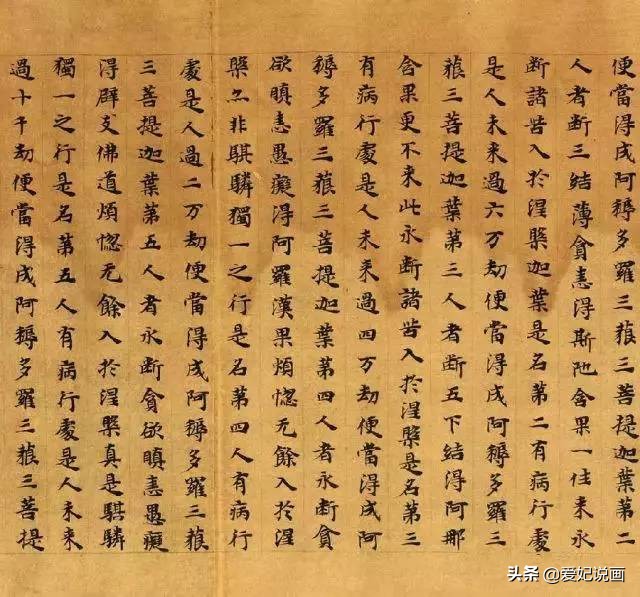 便當得成阿耨多羅三藐三菩提迦葉第二
人者斷三結薄貪恚得斯陁含果一往来永
斷諸苦入於涅槃迦葉是名第二有病行處
是人未来過六万劫便當得成阿耨多羅三
藐三菩提迦葉第三人者斷五下結得阿那
含果更不来此永斷諸苦入於涅槃是名第三
有病行處是人未来過四万劫便當得成阿
耨多羅三藐三菩提迦葉第四人者永斷貪
欲瞋恚愚癡得阿羅漢果煩惱无餘入於涅
槃亦非騏驎獨一之行是名第四人有病行
處是人過二万劫便當得成阿耨多羅三藐
三菩提迦葉第五人者永斷貪欲瞋恚愚癡
得辟支佛道煩惱无餘入於涅槃真是騏驎
獨一之行是名第五人有病行處是人未来
過十千劫便當得成阿耨多羅三藐三菩提
头条 @爱妃说画